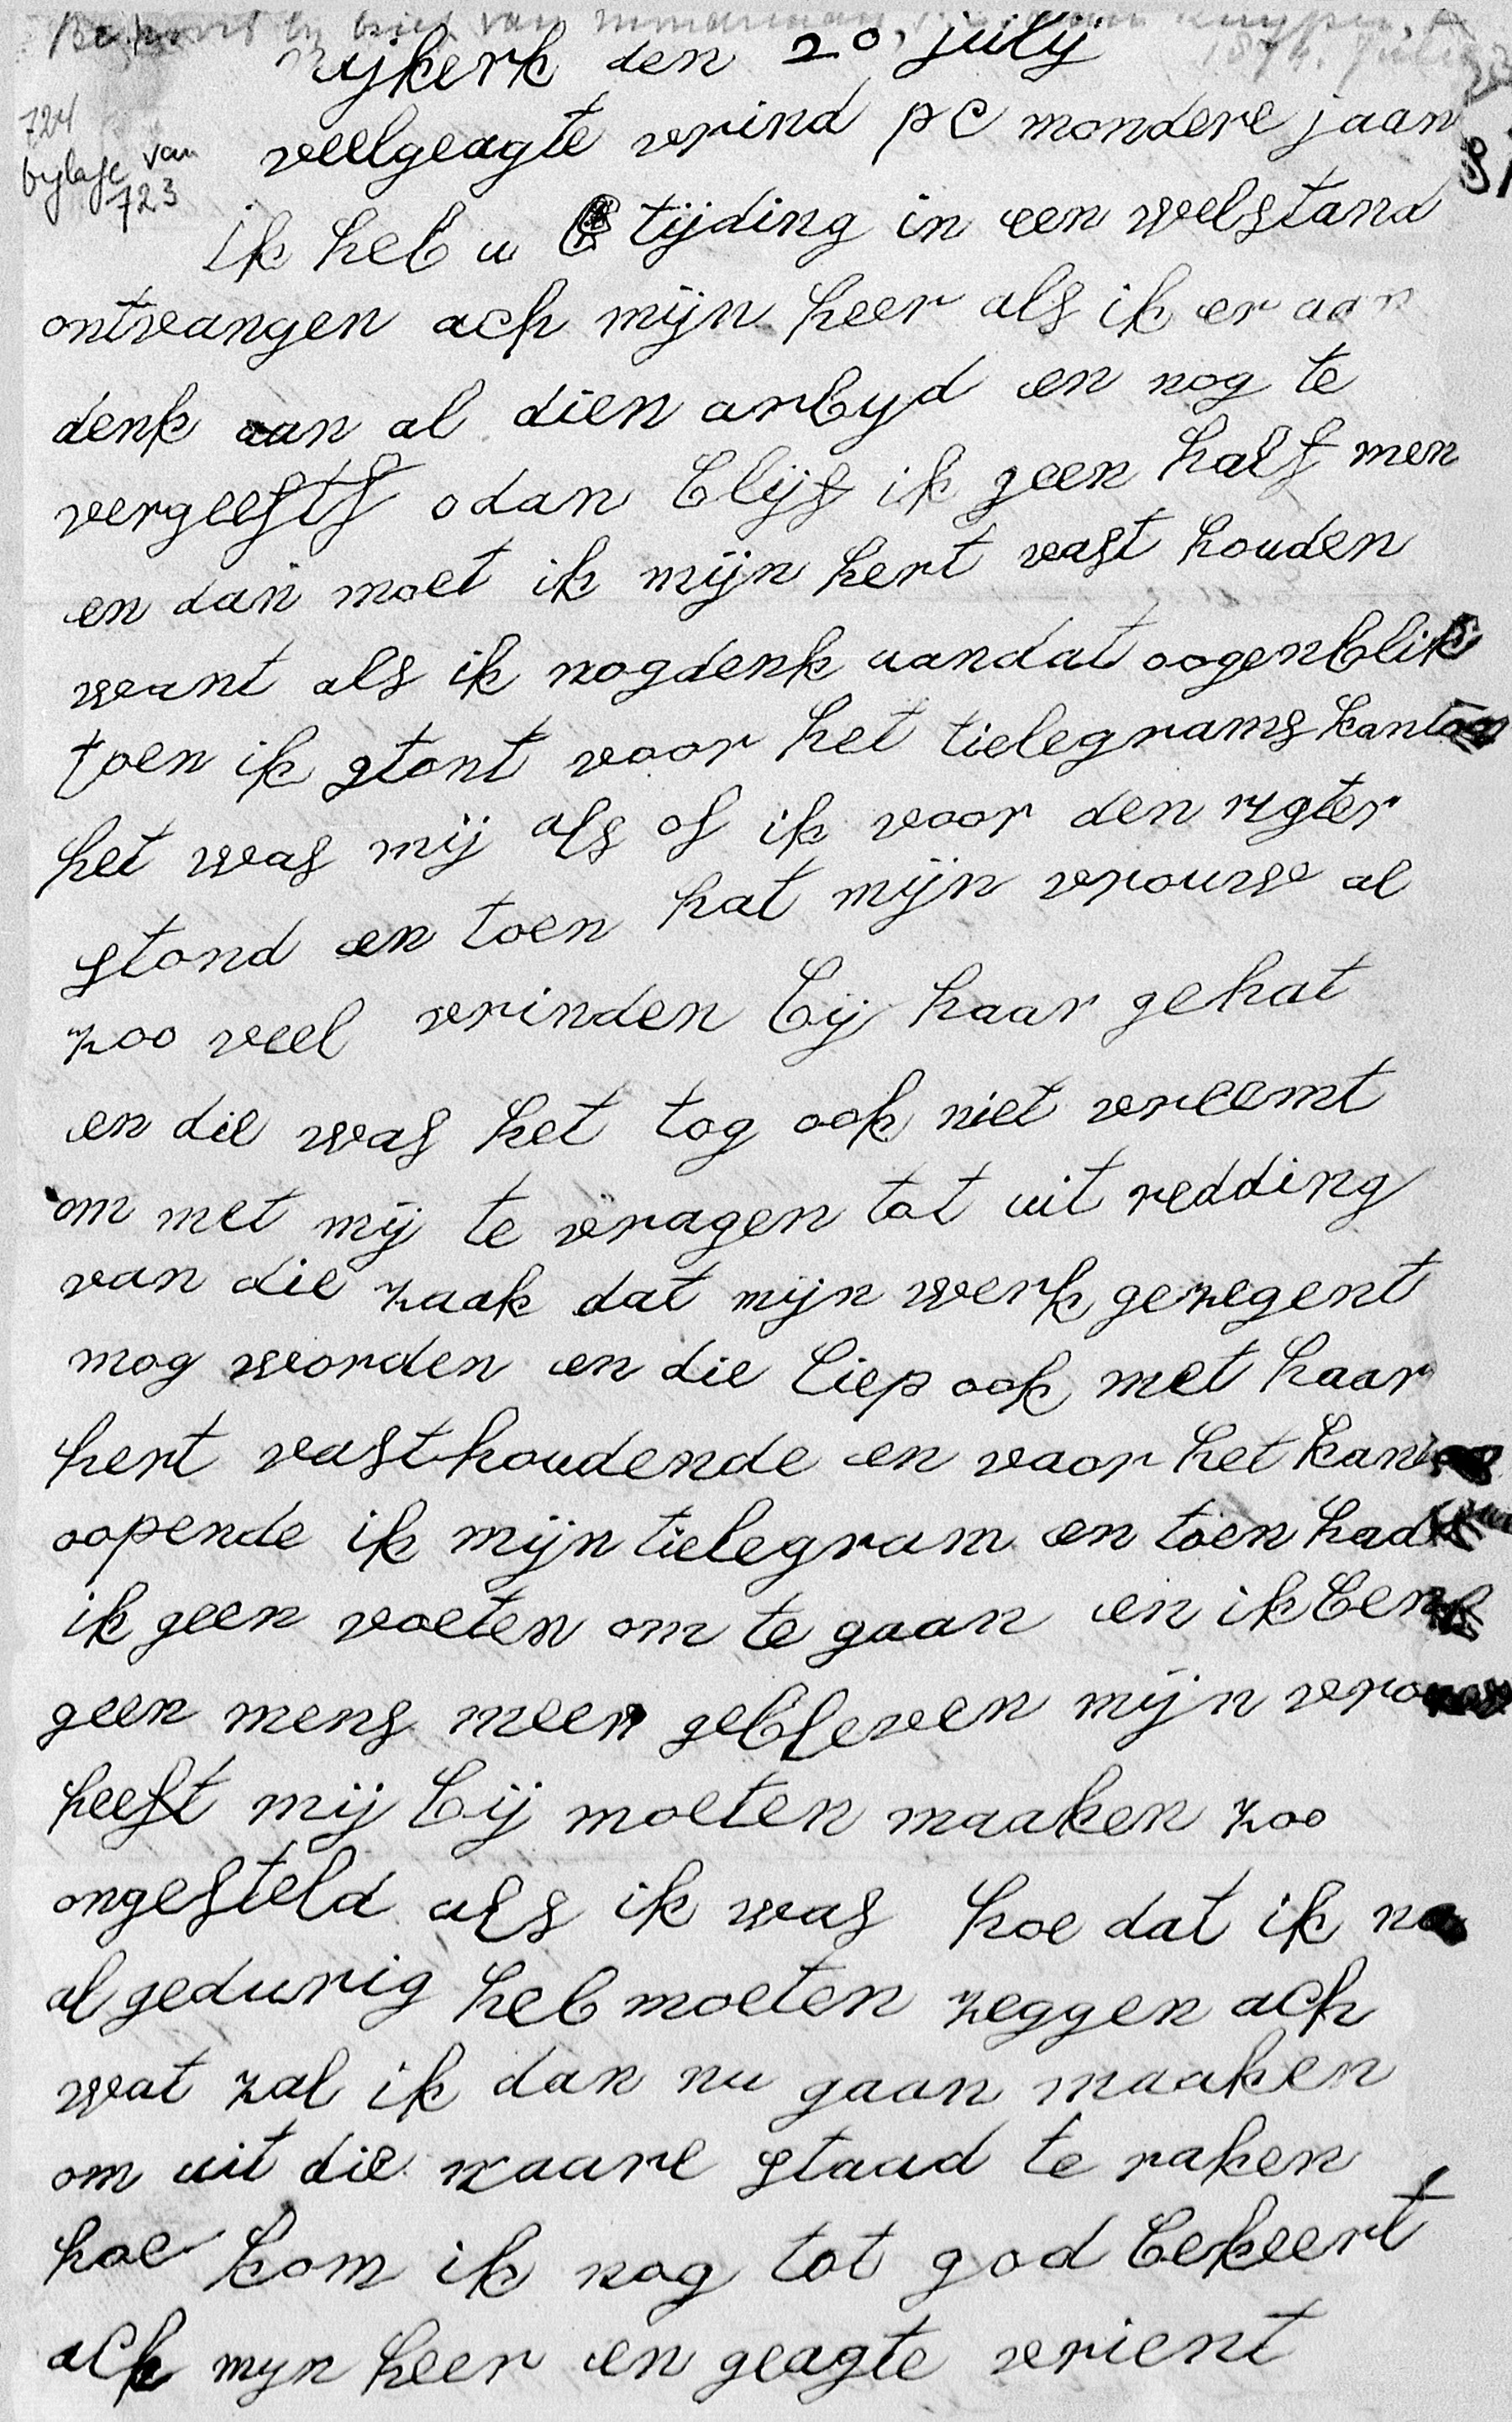 by brief van
1874. Julij 20
nijkerk den 20, julij
724
bijlage van
723
veelgeagte vrind p c mondere jaan
ik heb u tijding in een welstand
ontvangen ach mijn heer als ik er aan
denk aan al dien arbyd en nog te
vergeefts o dan blijf ik geen half men
en dan moet ik mijn hert vast houden
want als ik nog denk aan dat oogenblik
toen ik stont voor het tielegrams kantoor
het was mij als of ik voor den rigter
stond en toen hat mijn vrouw al
zoo veel vrinden bij haar gehat
en die was het tog ook niet vreemt
om met mij te vragen tot uit redding
van die zaak dat mijn werk gezegent
mog worden en die liep ook met haar
hert vasthoudende en voor het kantoor
oopende ik mijn tielegram en toen had
ik geen voeten om te gaan en ik ben
geen mens meer gebleven mijn vrouw
heeft mij bij moeten maaken zoo
ongesteld als ik was hoe dat ik na
al gedurig heb moeten zeggen ach
wat zal ik dan nu gaan maaken
om uit die naare staad te raken
hoe kom ik nog tot god bekeert
ach myn heer en geagte vrient